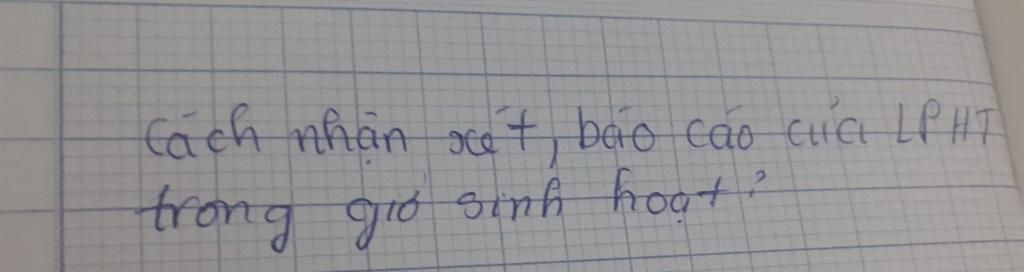 Cách nhận xét, báo cáo của LPHT
trong giờ sinh hoạt?